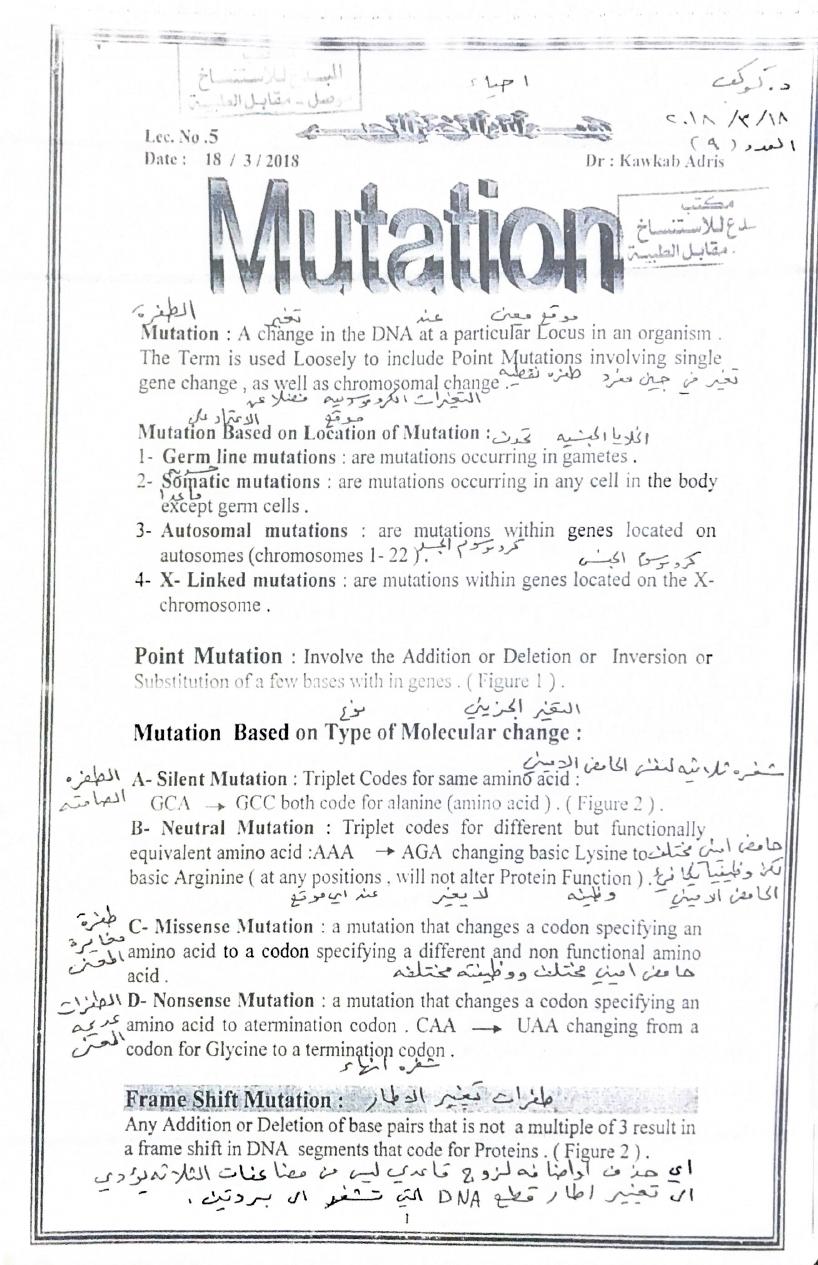 احياء
د. كوكب
٢٠١٨ /٣/ ١٨
العدد (٩)
للاستنساخ
مقابل الطبية
Lec. No .5
Date : 18 / 3 / 2018
Dr : Kawkab Adris
مكتب
للاستنساخ
مقابل الطبية
Mutation
الطفرة تغير عند موقع معين
Mutation : A change in the DNA at a particular Locus in an organism .
The Term is used Loosely to include Point Mutations involving single
gene change , as well as chromosomal change . طفره نقطيه تغير في جين مفرد
التغيرات الكروموسومية فضلا عن
الاعتماد على موقع
Mutation Based on Location of Mutation : تحدث الخلايا الجنسيه
1- Germ line mutations : are mutations occurring in gametes .
جسميه
2- Somatic mutations : are mutations occurring in any cell in the body
ماعدا
except germ cells .
3- Autosomal mutations : are mutations within genes located on
autosomes (chromosomes 1- 22 ). كروموسوم
كروموسوم الجنسي
4- X- Linked mutations : are mutations within genes located on the X-
chromosome .
Point Mutation : Involve the Addition or Deletion or Inversion or
Substitution of a few bases with in genes . ( Figure 1 ) .
نوع التغير الجزيئي
Mutation Based on Type of Molecular change :
شفره ثلاثيه لنفس الحامض الاميني
الطفره الصامته
A- Silent Mutation : Triplet Codes for same amino acid :
GCA → GCC both code for alanine (amino acid ) . ( Figure 2 ) .
B- Neutral Mutation : Triplet codes for different but functionally
equivalent amino acid :AAA → AGA changing basic Lysine to حامض اميني مختلف
basic Arginine ( at any positions , will not alter Protein Function ) . لكن وظيفيا
عند اي موقع لا يغير وظيفه الحامض الاميني
طفرة مغايرة المعنى
C- Missense Mutation : a mutation that changes a codon specifying an
amino acid to a codon specifying a different and non functional amino
acid .
حامض اميني مختلف ووظيفته مختلفه
الطفرات عديمه المعنى
D- Nonsense Mutation : a mutation that changes a codon specifying an
amino acid to atermination codon . CAA → UAA changing from a
codon for Glycine to a termination codon .
شفره انهاء
Frame Shift Mutation : طفرات تغيير الاطار
Any Addition or Deletion of base pairs that is not a multiple of 3 result in
a frame shift in DNA segments that code for Proteins . ( Figure 2 ) .
اي حذف او اضافه لزوج قاعدي ليس من مضاعفات الثلاثه يؤدي
الى تغيير اطار قطع DNA التي تشفر الى بروتين .
1